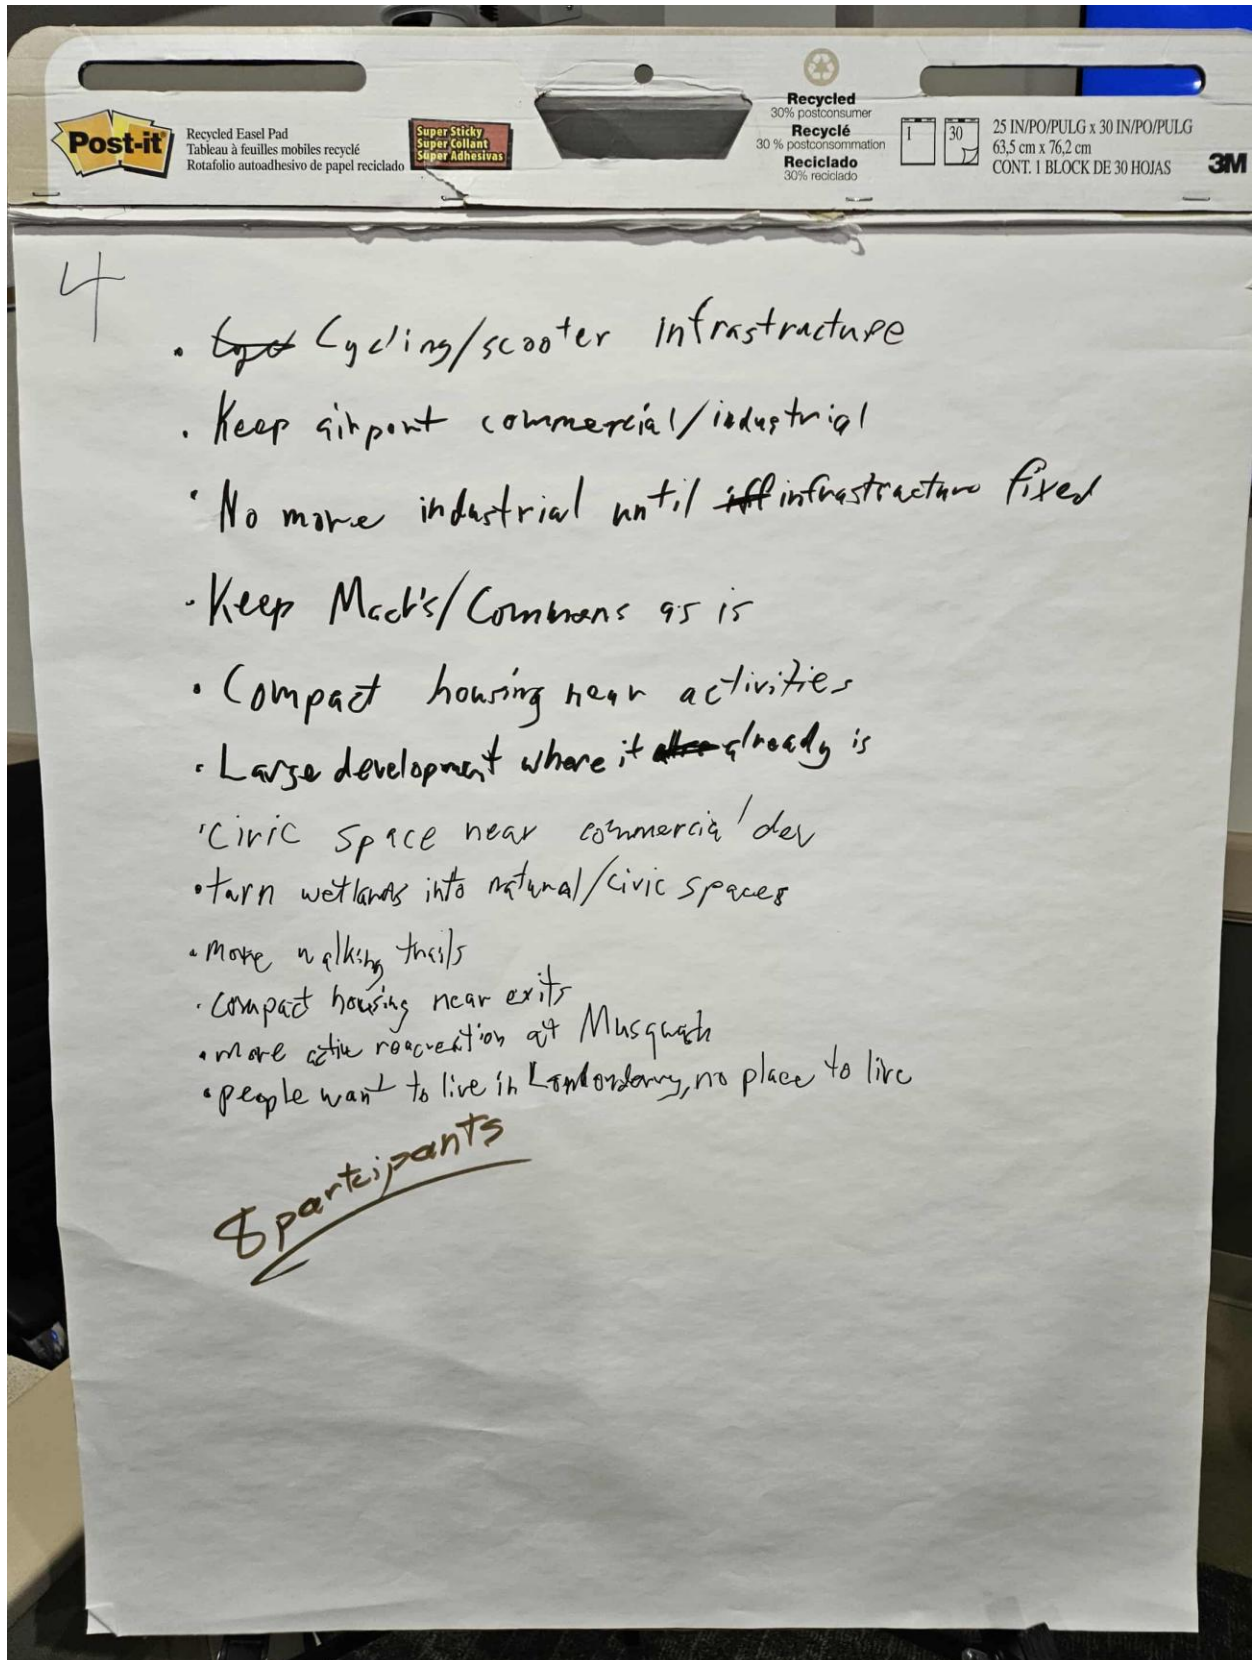 Post-it
Recycled Easel Pad
Tableau à feuilles mobiles recyclé
Rotafolio autoadhesivo de papel reciclado
Super Sticky
Super Collant
Súper Adhesivas
Recycled
30% postconsumer
Recyclé
30 % postconsommation
Reciclado
30% reciclado
1
30
25 IN/PO/PULG x 30 IN/PO/PULG
63,5 cm x 76,2 cm
CONT. 1 BLOCK DE 30 HOJAS
3M
4
· Cycling/scooter infrastructure
· Keep airport commercial/industrial
· No more industrial until infrastructure fixed
· Keep Mack's/Commons as is
· Compact housing near activities
· Large development where it already is
· Civic space near commercial dev
· turn wetlands into natural/civic spaces
· more walking trails
· compact housing near exits
· more active reacreation at Musquash
· people want to live in Londonderry, no place to live
8 participants